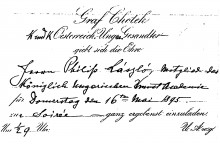 Graf Chotek
K und K Österreich Ungar Gesandter
gibt sich die Ehre
Herrn Philip László Mitglied der
Königlich ungarischen Kunst Academie
für Donnerstag den 16ten Mai 1895
zur Soirée ganz ergebenst einzuladen
Um 9 Uhr. U. A. w. g.